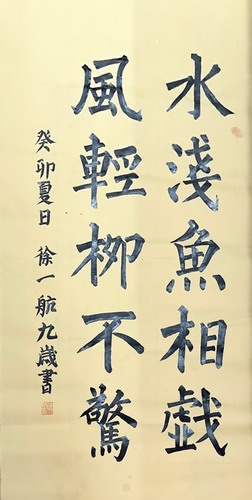 水淺魚相戲
風輕柳不驚
癸卯夏日 徐一航九歲書